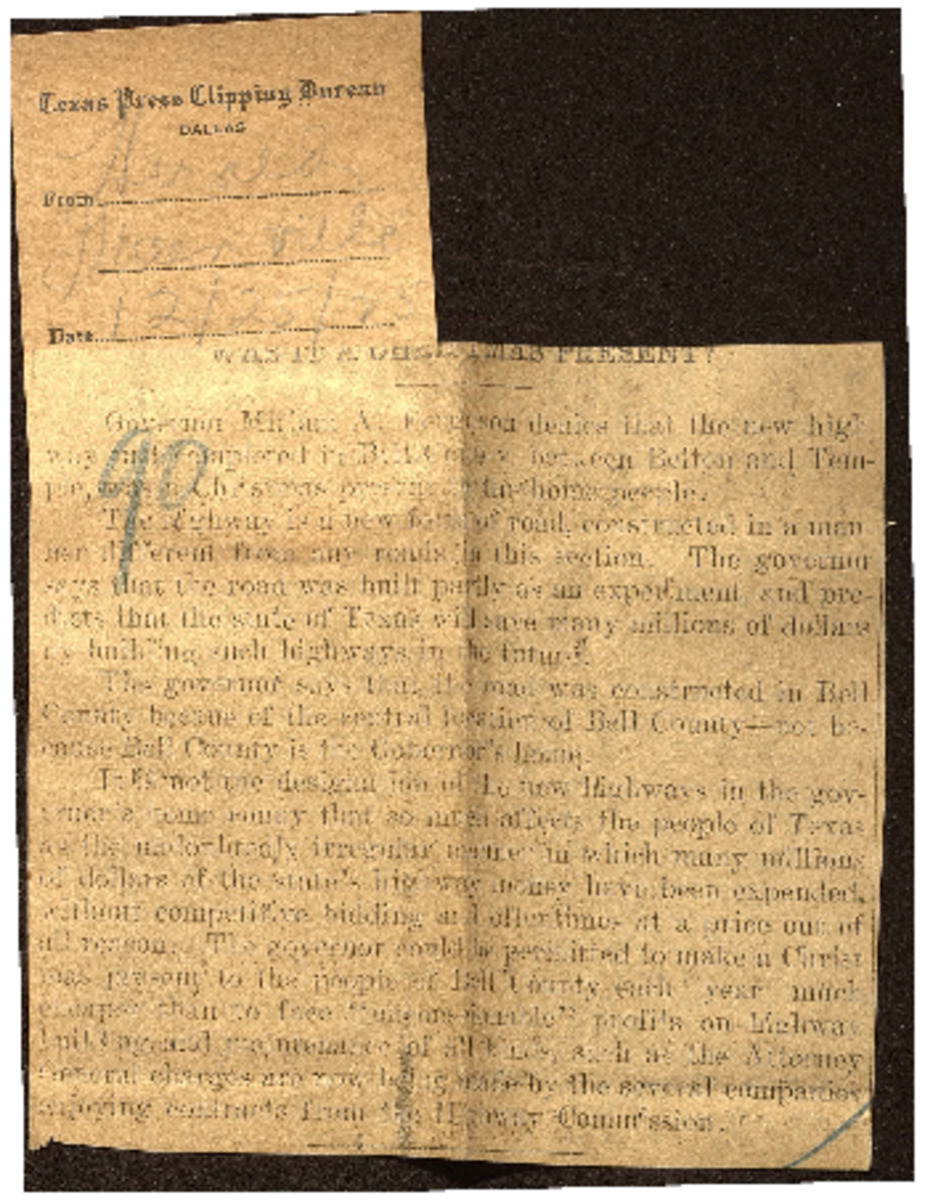 Texas Press Clipping Bureau
DALLAS
From Herald
Date 12/25/25
WAS IT A CHRISTMAS PRESENT?
90
Governor Miriam A. Ferguson denies that the new high-
way just completed in Bell County between Belton and Tem-
ple, was a Christmas present to the home people.
The highway is a new of road, constructed in a man-
ner different from any roads in this section. The governor
says that the road was built partly as an experiment and pre-
dicts that the state of Texas will save many millions of dollars
by building such highways in the future.
The governor says that the road was constructed in Bell
County because of the central location of Bell County—not be-
cause Bell County is the Governor's home.
It is not the of the new Highways in the gov-
ernor's home county that so much affects the people of Texas
as the irregular manner in which many millions
of dollars of the state's highway money have been expended,
without competitive bidding and oftentimes at a price out of
all reason. The governor could be permitted to make a Christ-
mas present to the people of Bell County each year much
cheaper than to face profits on highway
building and maintenance of all kinds, such as the Attorney
General charges are now being made by the several companies
enjoying contracts from the Highway Commission.